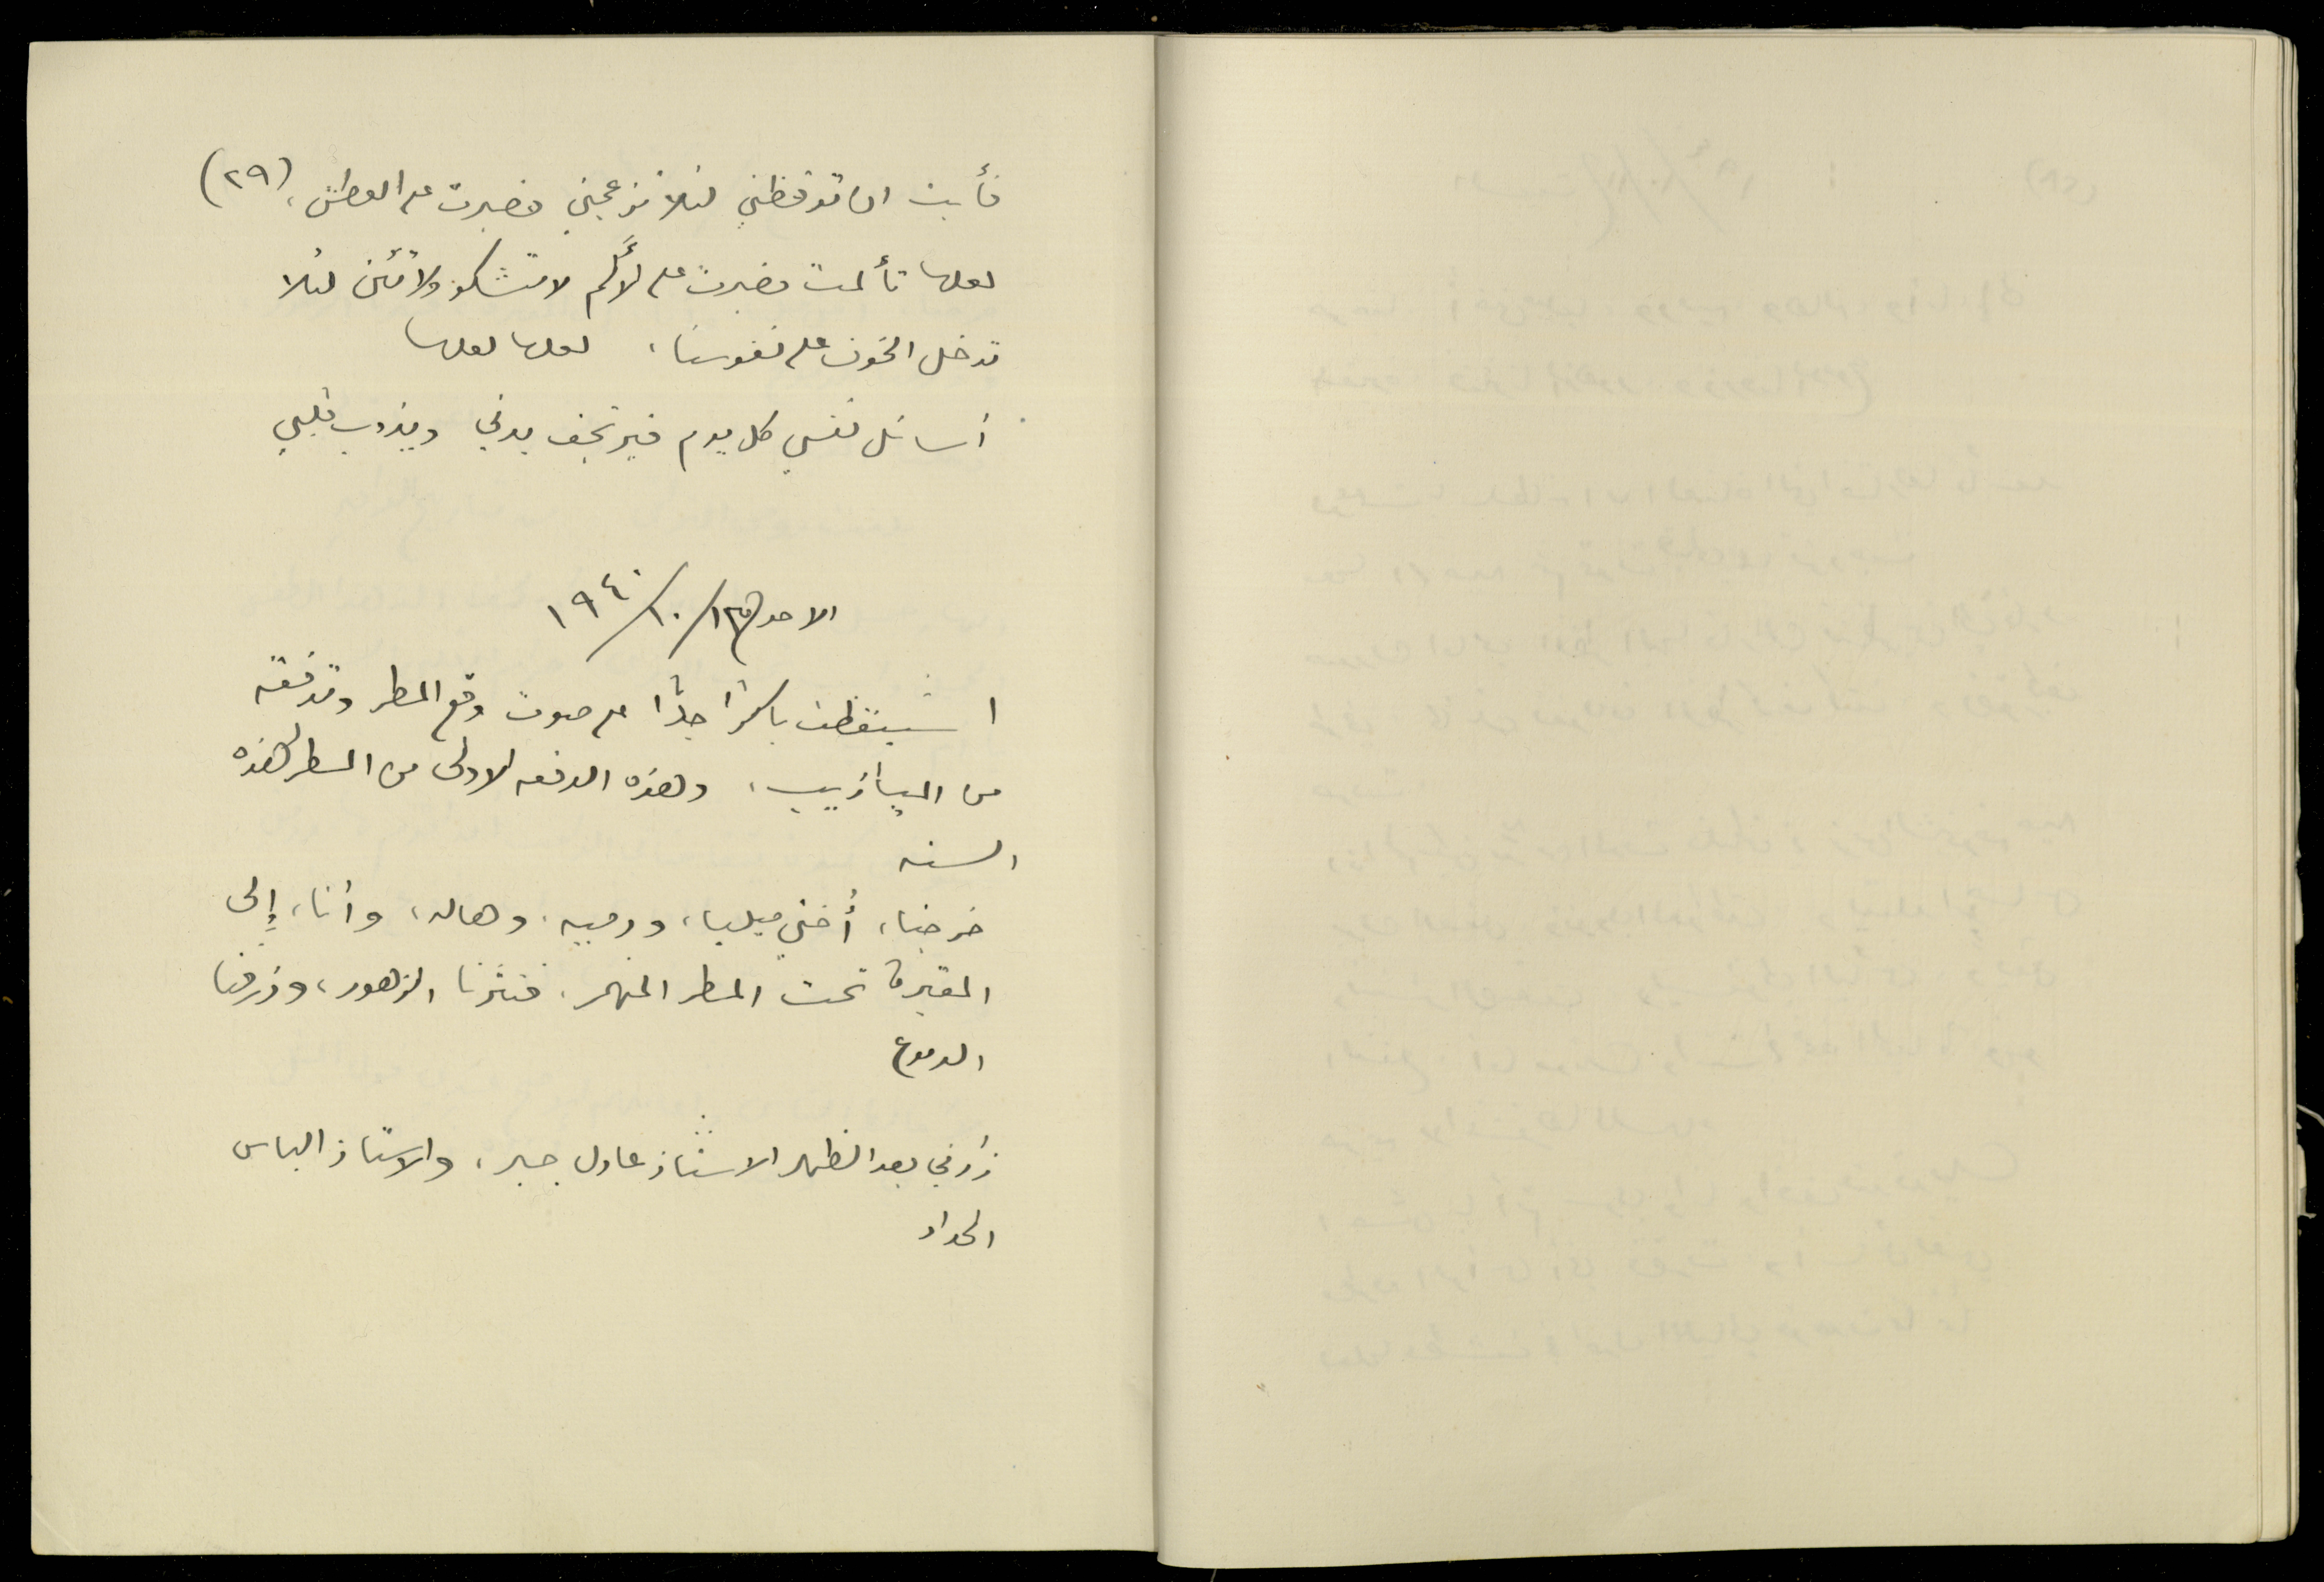 (٢٩)
فأبت ان توقظني لئلا تزعجني فصبرت على العطش،
لعلها تألمت فصبرت على الألم لا تشكو ولا تئن لئلا
تدخل الخوف على نفوسنا، لعلها لعلها
أسائل نفسي كل يوم فيرتجف بدني ويذوب قلبي
الاحد ١٣/١٠/١٩٤٠
استيقظت باكراً جداً على صوت وقع المطر وتدفقه
من الميازيب، وهذه الدفعه الاولى من المطر لهذه
السنه
خرجنا، أختي ميليا، ودميه، وهاله، وأنا، إلى
المقبرة تحت المطر المنهمر، فنثرنا الزهور، وذرفنا
الدموع
زارني بعد الظهر الاستاذ عادل جبر، والاستاذ الياس
الحداد